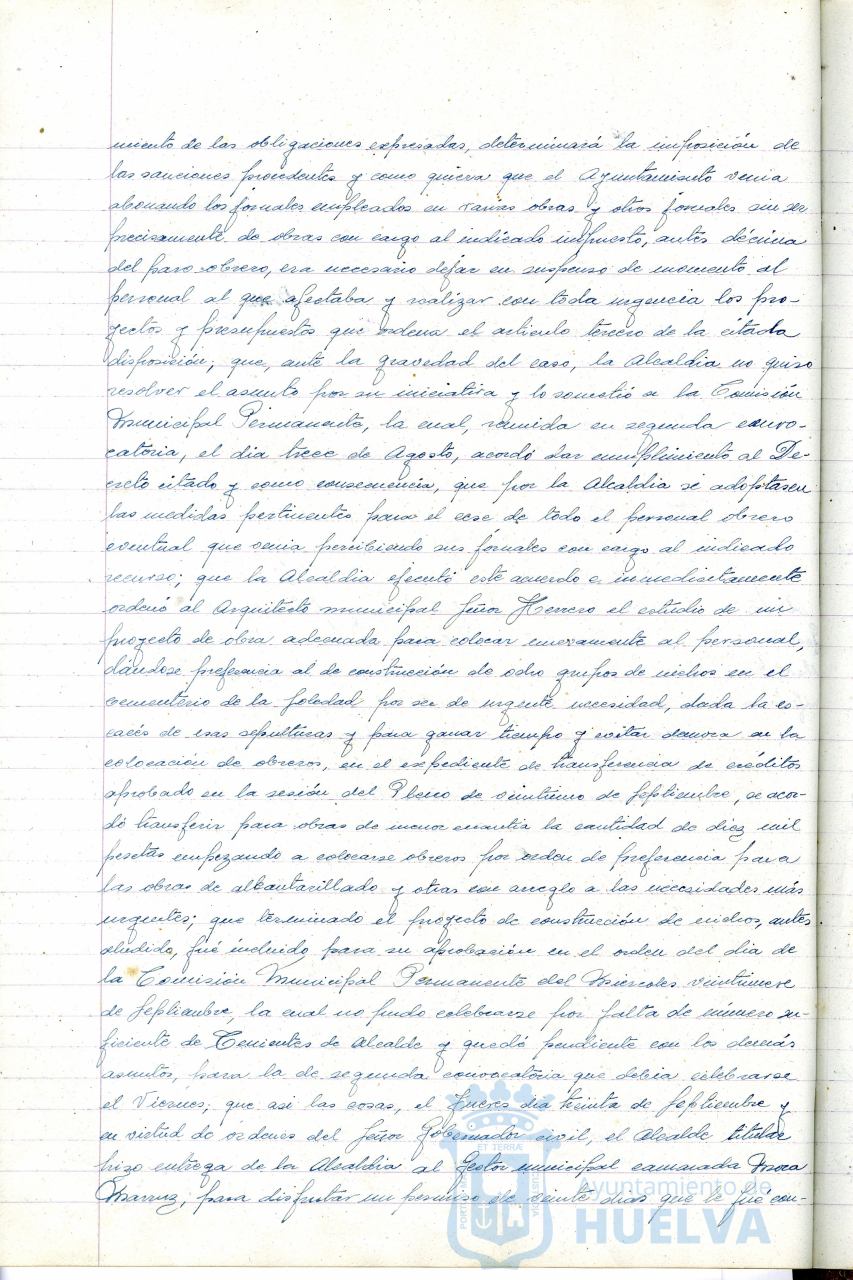 miento de las obligaciones expresadas, determinará la imposición de
las sanciones procedentes y como quiera que el Ayuntamiento venia
abonando los jornales empleados en varias obras y otros jornales sin ser
precisamente de obras con cargo al indicado impuesto, antes décima
del paro obrero, era necesario dejar en suspenso de momento al
personal al que afectaba y realizar con toda urgencia los pro-
yectos y presupuestos que ordena el articulo tercero de la citada
disposición; que, ante la gravedad del caso, la Alcaldia no quiso
resolver el asunto por su iniciativa y lo sometió a la Comisión
Municipal Permanente, la cual, reunida en segunda convo-
catoria, el dia trece de Agosto, acordó dar cumplimiento al De-
creto citado y como consecuencia, que por la Alcaldia se adoptasen
las medidas pertinentes para el cese de todo el personal obrero
eventual que venia percibiendo sus jornales con cargo al indicado
recurso; que la Alcaldia ejecutó este acuerdo e inmediatamente
ordenó al Arquitecto municipal Señor Herrero el estudio de un
proyecto de obra adecuada para colocar nuevamente al personal,
dándose preferencia al de construcción de ocho grupos de nichos en el
cementerio de la Soledad por ser de urgente necesidad, dada la es-
cacés de esas sepulturas y para ganar tiempo y evitar demora en la
colocación de obreros, en el expediente de transferencia de créditos
aprobado en la sesión del Pleno de veintiuno de Septiembre, se acor-
dó transferir para obras de menor cuantia la cantidad de diez mil
pesetas empezando a colocarse obreros por orden de preferencia para
las obras de alcantarillado y otras con arreglo a las necesidades más
urgentes; que terminado el proyecto de construcción de nichos, antes
aludido, fué incluido para su aprobación en el orden del dia de
la Comisión Municipal Permanente del Miercoles veintinueve
de Septiembre, la cual no pudo celebrarse por falta de número su-
ficiente de Tenientes de Alcalde y quedó pendiente con los demás
asuntos, para la de segunda convocatoria que debia celebrarse
el Viernes; que asi las cosas, el Jueves dia treinta de Septiembre y
en virtud de órdenes del Señor Gobernador civil, el Alcalde titular
hizo entrega de la Alcaldia al Gestor municipal camarada Mora
para disfrutar un permiso de veinte dias que le fué con-
Ayuntamiento de
HUELVA